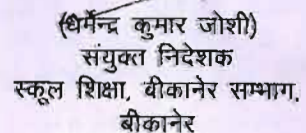 (धर्मेन्द्र कुमार जोशी)
संयुक्त निदेशक
स्कूल शिक्षा, बीकानेर सम्भाग,
बीकानेर